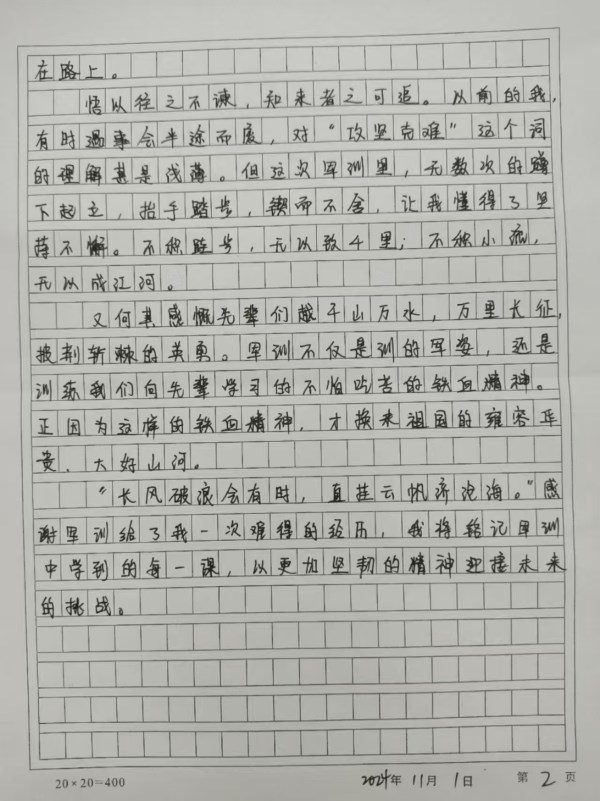 在路上。
悟以往之不谏，知来者之可追。以前的我，
有时遇事会半途而废，对“攻坚克难”这个词
的理解甚是浅薄。但这次军训里，无数次的蹲
下起立，抬手踏步，锲而不舍，让我懂得了坚
持不懈。不积跬步，无以致千里；不积小流，
无以成江河。
又何其感慨先辈们越千山万水，万里长征，
披荆斩棘的英勇。军训不仅是训的军姿，还是
训练我们向先辈学习的不怕吃苦的铁血精神。
正因为这样的铁血精神，才换来祖国的雍容华
贵、大好山河。
“长风破浪会有时，直挂云帆济沧海。”感
谢军训给了我一次难得的经历，我将铭记军训
中学到的每一课，以更加坚韧的精神迎接未来
的挑战。
20×20=400 2024年 11月 1日 第 2 页